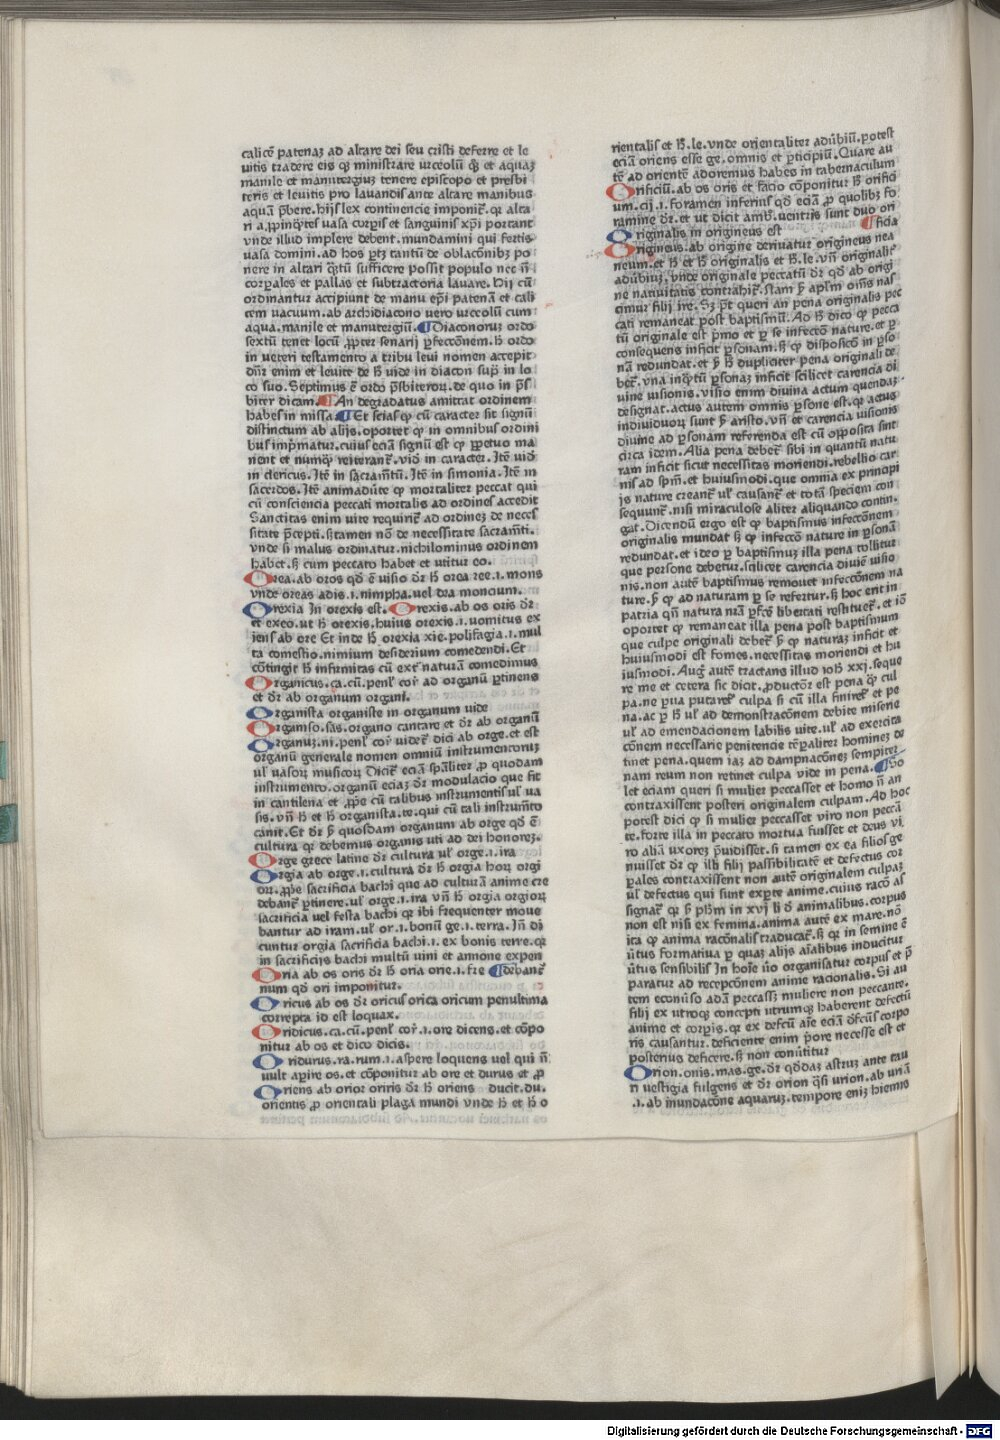 calicē patenaʒ ad altare dei seu cristi deferre et le
uitis tradere eis qʒ ministrare vrceolū qʒ et aquaʒ
manile et manutergiuʒ tenere episcopo et presbi
teris et leuitis pro lauandis ante altare manibus
aquā p̄bere. hijs lex continencie imponit̄. qꝛ alta
ri a ꝓpinq̄ntes uasa corꝑis et sanguinis xp̄i portant
vnde illud implere debent. mundamini qui fertis
uasa domini. ad hos ꝑtʒ tantū de oblacōnibʒ po
nere in altari q̄ntū sufficere possit populo nec nō
corꝑales et pallas et subtractoria lauare. Hij cū
ordinantur accipiunt de manu ep̄i patenā et cali
cem vacuum. ab archidiacono uero vrceolū cum
aqua. manile et manutergiū. Diaconoruʒ ordo
sextū tenet locū ꝓpter senarij ꝑfectōnem. h̄ ordo
in ueteri testamento a tribu leui nomen accepit
dn̄r enim et leuite de h̄ vide in diacon sup̄ in lo
co suo. Septimus ē ordo p̄sbiteroꝝ. de quo in p̄s
biter dicam. An degradatus amittat ordinem
habes in missa. Et scias ꝙ cū caracter sit signū
distinctum ab alijs. oportet ꝙ in omnibus ordini
bus imp̄matur. cuius eciā signū est ꝙ ꝑpetuo ma
nent et numqꝫ reiterant̄. vid̄ in caracter. Itē uid̄
in clericus. Itē in sacramētū. Itē in simonia. Itē in
sacerdos. Itē animaduēte ꝙ mortaliter peccat qui
cū consciencia peccati mortalis ad ordines accedit
Sanctitas enim uite requirit̄ ad ordineʒ de neces
sitate p̄cepti. sʒ tamen nō de necessitate sacramēti.
vnde si malus ordinatur. nichilominus ordinem
habet. sʒ cum peccato habet et vtitur eo.
Orea. ab oros qd̄ ē visio dr̄ h̄ orea ree. i. mons
vnde oreas adis. i. nimpha. uel dea moncium.
Orexia In orexis est. Orexis. ab os oris dr̄
et exeo. ut h̄ orexis. huius orexis. i. uomitus ex
iens ab ore Et inde h̄ orexia xie. polifagia. i. mul
ta comestio. nimium desiderium comedendi. Et
cōtingit h̄ infirmitas cū extͣ naturā comedimus
Organicus. ca. cū. penl̄ cor̄ ad organū ꝑtinens
et dr̄ ab organum organi.
Organista organiste in organum uide
Organiso. sas. organo cantare et dr̄ ab organū
Organuʒ. ni. penl̄ cor̄ uidet̄ dici ab orge. et est
organū generale nomen omniū instrumentoruʒ
ul̄ uasoꝝ musicoꝝ Dicit̄ eciā sp̄aliter ꝓ quodam
instrumento. organū eciaʒ dr̄ modulacio que fit
in cantilena et ꝓprie cū talibus instrumentis ul̄ ua
sis. vn̄ h̄ et h̄ organista. te. qui cū tali instrumēto
canit. Et dr̄ ẜm quosdam organum ab orge qd̄ ē
cultura qꝛ debemus organis uti ad dei honoreʒ.
Orge grece latine dr̄ cultura ul̄ orge. i. ira
Orgia ab orge. i. cultura dr̄ h̄ orgia hoꝝ orgi
oꝝ. ꝓprie sacrificia bachi que ad culturā anime cre
debant̄ ꝑtinere. ul̄ orge. i. ira vn̄ h̄ orgia orgioꝝ
sacrificia uel festa bachi qꝛ ibi frequenter moue
bantur ad iram. ul̄ or. i. bonū ge. i. terra. Jn̄ di
cuntur orgia sacrificia bachi. i. ex bonis terre. qꝛ
in sacrificijs bachi multū uini et annone expen
Oria ab os oris dr̄ h̄ oria orie. i. fre debant̄
num qd̄ ori imponitur.
Oricus ab os dr̄ oricus orica oricum penultima
correpta id est loquax.
Oridicus. ca. cū. penl̄ cor̄. i. ore dicens. et cōpo
nitur ab os et dico dicis.
Oridurus. ra. rum. i. aspere loquens uel qui nō
uult aꝑire os. et cōponitur ab ore et durus et ꝓ
Oriens ab orior oriris dr̄ h̄ oriens ducit. du.
orientis ꝓ orientali plaga mundi vnde h̄ et h̄ o
rientalis et h̄. le. vnde orientaliter aduerbiū. potest
eciā oriens esse ge. omnis et ꝑticipiū. Quare au
tē ad orientē adoremus habes in tabernaculum
Orificiū. ab os oris et facio cōponitur h̄ orifici
um. cij. i. foramen inferius qd̄ eciā ꝓ quolibʒ fo
ramine dr̄. et ut dicit amb. uentris sunt duo ori
Originalis in origineus est ficia
Origineus. ab origine deriuatur origineus nea
neum. et h̄ et h̄ originalis et h̄. le. vn̄ originalit̄
aduerbiuʒ. vnde originale peccatū dr̄ qd̄ ab origi
ne natiuitatis contrahit̄. nam ẜm ap̄lm om̄s nas
cimur filij ire. Sʒ pōt queri an pena originalis pec
cati remaneat post baptismū. Ad h̄ dico ꝙ pecca
tū originale est p̄mo et ꝑ se infectō nature. et ꝑ
consequens inficit ꝑsonam. sʒ ꝙ disposicō in ꝑso
nā redundat. et ẜm h̄ dupliciter pena originali de
bet̄. vna inqͣntū ꝑsonaʒ inficit scilicet carencia di
uine uisionis. visio enim diuina actum quendaʒ
designat. actus autem omnis ꝑsone est. qꝛ actus
indiuiduoꝝ sunt ẜm aristo. vn̄ et carencia uisionis
diuine ad ꝑsonam referenda est cū opposita sint
circa idem. Alia pena debet̄ sibi in quantū natu
ram inficit sicut necessitas moriendi. rebellio car
nis ad sp̄m. et huiusmodi. que omnia ex principi
js nature creant̄ ul̄ causant̄ et totā speciem con
sequunt̄. nisi miraculose aliter aliquando contin.
gat. Dicendū ergo est ꝙ baptismus infectōnem
originalis mundat sʒ ꝙ infectō nature in ꝑsonā
redundat. et ideo ꝑ baptismuʒ illa pena tollitur
que persone debetur. scilicet carencia diuine uisio
nis. non autē baptismus remouet infectōnem na
ture. ẜm ꝙ ad naturam ꝑ se refertur. sʒ hoc erit in
patria qn̄ natura nrā ꝑfecte libertati restituet̄. et iō
oportet ꝙ remaneat illa pena post baptismum
que culpe originali debet̄ ẜm ꝙ naturaʒ inficit et
huiusmodi est fomes. necessitas moriendi et hu
iusmodi. Aug̃ autē tractans illud ioh̄ xxi. seque
re me et cetera sic dicit. ꝓductōr est pena qͣʒ cul
pa. ne ꝑua putaret̄ culpa si cū illa finiret̄ et pe
na. ac ꝑ h̄ ul̄ ad demonstracōnem debite miserie
ul̄ ad emendacionem labilis uite. ul̄ ad exercita
cōnem necessarie penitencie tēꝑaliter homineʒ de
tinet pena. quem iaʒ ad dampnacōneʒ sempiter
nam reum non retinet culpa vide in pena. So
let eciam queri si mulier peccasset et homo nō an
contraxissent posteri originalem culpam. Ad hoc
potest dici ꝙ si mulier peccasset viro non peccā
te. forte illa in peccato mortua fuisset et deus vi.
ro aliā uxoreʒ ꝓuidisset. si tamen ex ea filios ge
nuisset dr̄ ꝙ illi filij passibilitatē et defectus cor
ꝑales contraxissent non autē originalem culpaʒ
ul̄ defectus qui sunt exꝑte anime. cuius racō as
signat̄ qꝛ ẜm ph̄m in xvj li d̄ animalibus. corpus
non est nisi ex femina. anima autē ex mare. nō
ita ꝙ anima racōnalis traducat̄. sʒ qꝛ in semine ē
u̇tus formatiua ꝑ quaʒ alijs aīalibus inducitur
u̇tus sensibilis Jn hoīe u̇o organisatur corpus et p̄
paratur ad recepcōnem anime racionalis. Si au
tem econūso adā peccassʒ muliere non peccante.
filij ex utroqʒ concepti utrumqʒ haberent defectū
anime et corꝑis. qꝛ ex defcū aīe eciā dēfcūs corpo
ris causantur. deficiente enim p̄ore necesse est et
posterius deficere. sʒ non conūtitur
Orion. onis. mas. ge. dr̄ qd̄daʒ astruʒ ante tau
ri uestigia fulgens et dr̄ orion q̄si urion. ab unā
.i. ab inundacōne aquaruʒ. tempore eniʒ hiemis
Digitalisierung gefördert durch die Deutsche Forschungsgemeinschaft - DFG